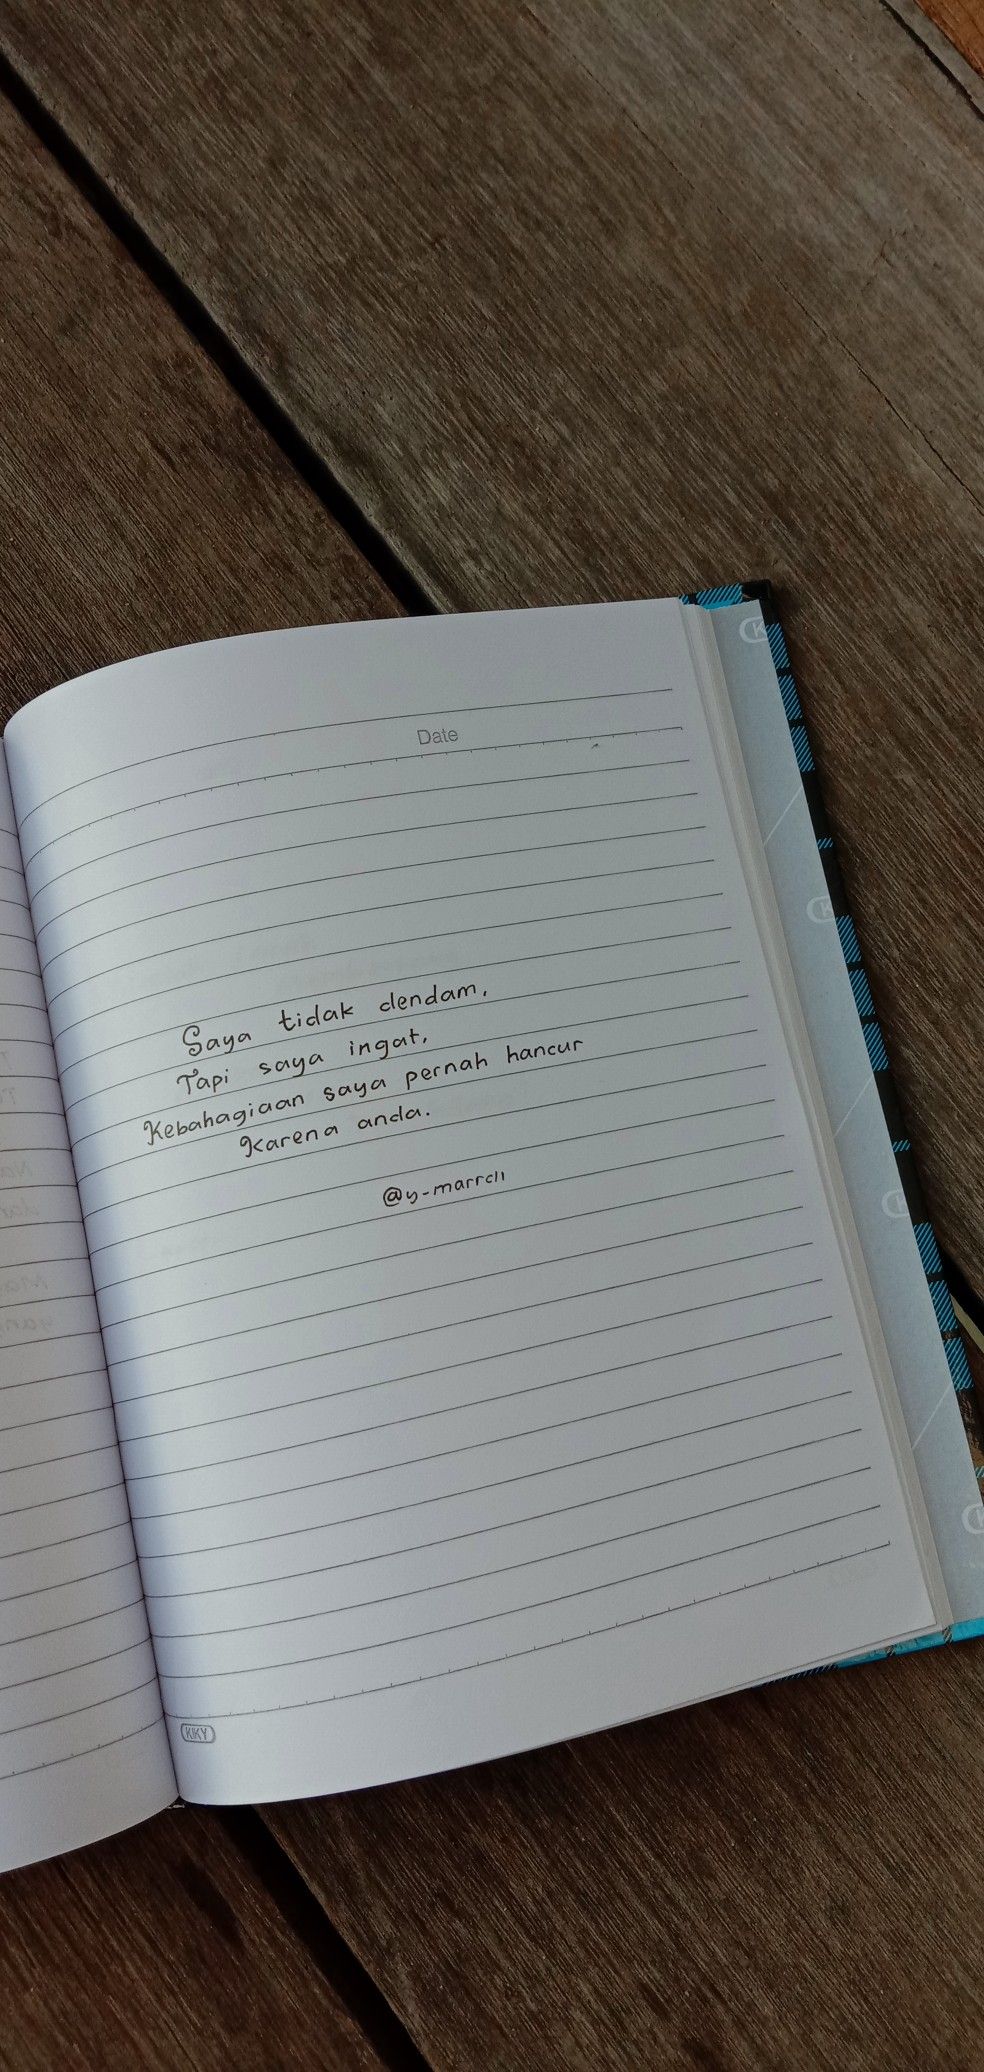 Date
Saya tidak dendam,
Tapi saya ingat,
Kebahagiaan saya pernah hancur
Karena anda.
@y-marrell
KIKY